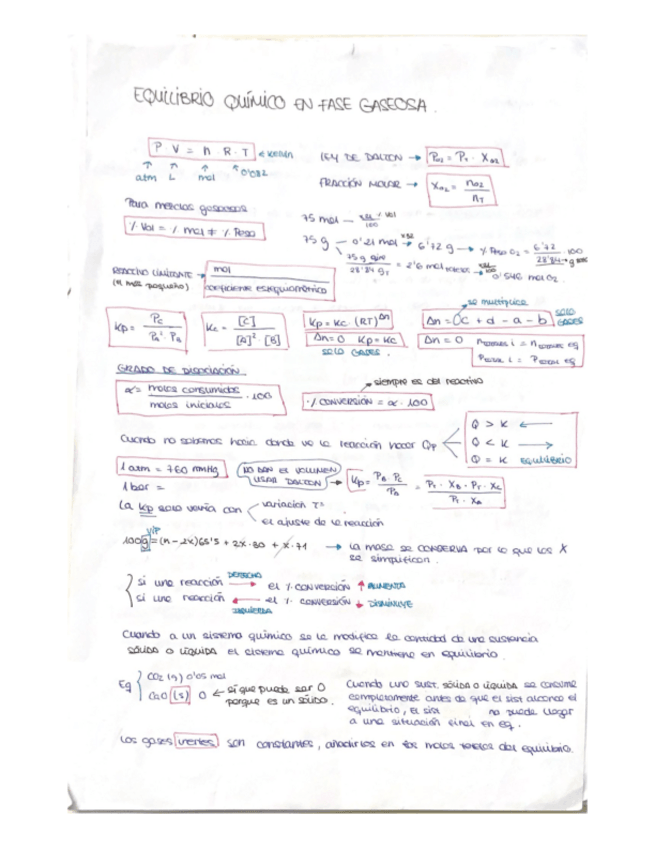 EQUILIBRIO QUÍMICO EN FASE GASEOSA.
P · V = n · R · T ← Kelvin
atm L mol 0'082
LEY DE DALTON → P_O2 = P_T · X_O2
FRACCIÓN MOLAR → X_O2 = n_O2 / n_T
Para mezclas gaseosas
% Vol = % mol ≠ % Peso
75 mol — x21 % vol / 100
75 g — 0'21 mol x32 → 6'72 g → % Peso O2 = 6'72 / 28'84 · 100
75 g aire / 28'84 g = 2'6 mol totales x21 / 100 → 0'546 mol O2.
REACTIVO LIMITANTE → mol / coeficiente estequiométrico
(el más pequeño)
→ se multiplica
Kp = P_C / P_A² · P_B
Kc = [C] / [A]² · [B]
Kp = Kc · (RT)^Δn
Δn = c + d - a - b SOLO GASES
Δn = 0 Kp = Kc
SOLO GASES.
Δn = 0 n totales i = n totales eq
P total i = P total eq
GRADO DE DISOCIACIÓN
α = moles consumidos / moles iniciales · 100
→ siempre es del reactivo
% CONVERSIÓN = α · 100
Cuando no sabemos hacia donde va la reacción hacer Qp
Q > K ←
Q < K →
Q = K EQUILIBRIO
1 atm = 760 mmHg
1 bar =
NO DAN EL VOLUMEN
USAR DALTON → Kp = P_B · P_C / P_A = P_T · X_B · P_T · X_C / P_T · X_A
La Kp solo varía con variación Tª
el ajuste de la reacción
VIP
100 g = (n - 2x) 65'5 + 2x · 30 + x · 71 → la masa se CONSERVA por lo que las X
se simplifican.
si una reacción DERECHA → el % CONVERSIÓN ↑ AUMENTA
si una reacción ← IZQUIERDA el % CONVERSIÓN ↓ DISMINUYE
Cuando a un sistema químico se le modifica la cantidad de una sustancia
SÓLIDA O LÍQUIDA el sistema químico se mantiene en equilibrio.
Eq CO2 (g) 0'05 mol
CaO (s) 0 ← sí que puede ser 0
porque es un sólido.
Cuando una sust. SÓLIDA O LÍQUIDA se consume
completamente antes de que el sist alcance el
equilibrio, el sist no puede llegar
a una situación final en eq.
Los gases inertes son constantes, añadirlos en los moles totales del equilibrio.